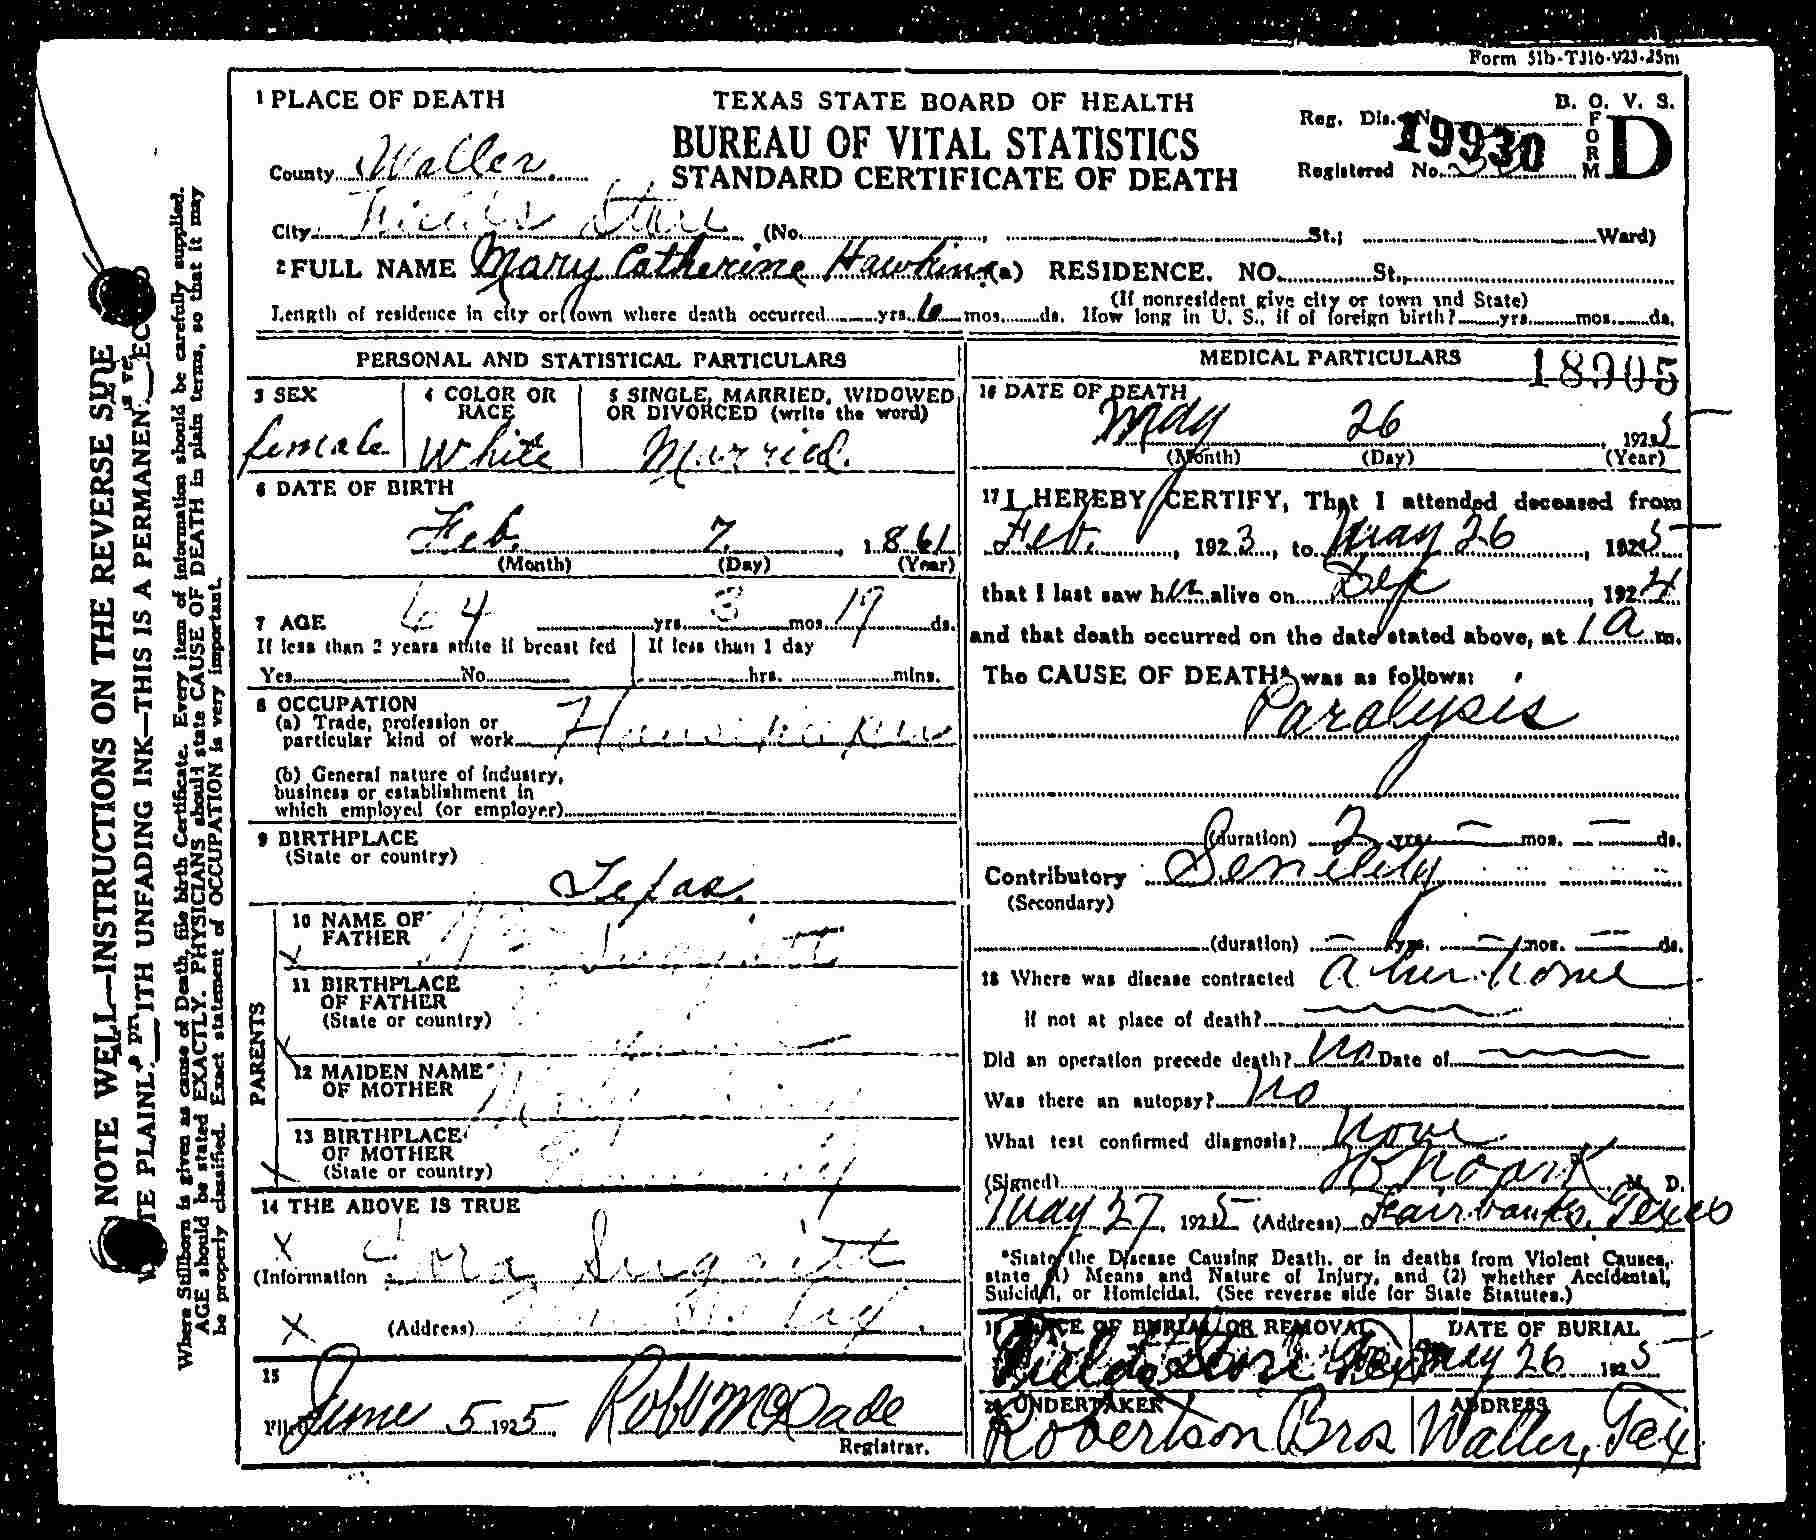 Form 51b-T316-923-25m
1 PLACE OF DEATH
TEXAS STATE BOARD OF HEALTH
B. O. V. S.
BUREAU OF VITAL STATISTICS
STANDARD CERTIFICATE OF DEATH
Reg. Dis. N 19930
FORM D
Registered No.
County Waller.
City Fields Store (No. , St.; Ward)
2 FULL NAME Mary Catherine Hawkins (a) RESIDENCE. NO. St.,
(If nonresident give city or town and State)
Length of residence in city or town where death occurred yrs. 6 mos. ds. How long in U. S., if of foreign birth? yrs. mos. ds.
PERSONAL AND STATISTICAL PARTICULARS
3 SEX
female
4 COLOR OR RACE
White
5 SINGLE, MARRIED, WIDOWED OR DIVORCED (write the word)
Married.
6 DATE OF BIRTH
Feb. 7. , 1861
(Month) (Day) (Year)
7 AGE 64 yrs. 3 mos. 19 ds.
If less than 2 years state if breast fed
Yes No
If less than 1 day
hrs. mins.
8 OCCUPATION
(a) Trade, profession or
particular kind of work Housekeeper
(b) General nature of industry,
business or establishment in
which employed (or employer)
9 BIRTHPLACE
(State or country)
Texas.
PARENTS
10 NAME OF
FATHER
11 BIRTHPLACE
OF FATHER
(State or country)
12 MAIDEN NAME
OF MOTHER
13 BIRTHPLACE
OF MOTHER
(State or country)
14 THE ABOVE IS TRUE
(Information
(Address)
15
Filed June 5 1925. Robt McDade
Registrar.
MEDICAL PARTICULARS 18905
16 DATE OF DEATH
May 26 1925
(Month) (Day) (Year)
17 I HEREBY CERTIFY, That I attended deceased from
Feb. , 1923, to May 26 , 1925
that I last saw her alive on , 1924
and that death occurred on the date stated above, at 1 a m.
The CAUSE OF DEATH* was as follows:
Paralysis
(duration) 2 yrs. — mos. — ds.
Contributory Senility
(Secondary)
(duration) — yrs. — mos. — ds.
18 Where was disease contracted at her home
If not at place of death?
Did an operation precede death? No Date of
Was there an autopsy? No
What test confirmed diagnosis? None
(Signed) M. D.
May 27, 1925 (Address) Fairbanks, Texas
*State the Disease Causing Death, or in deaths from Violent Causes,
state (1) Means and Nature of Injury, and (2) whether Accidental,
Suicidal, or Homicidal. (See reverse side for State Statutes.)
19 PLACE OF BURIAL OR REMOVAL
Fields Store Tex
DATE OF BURIAL
May 26 1925
20 UNDERTAKER
Robertson Bros
ADDRESS
Waller, Tex
NOTE WELL—INSTRUCTIONS ON THE REVERSE SIDE
WITH UNFADING INK—THIS IS A PERMANENT
Where Stillborn is given as cause of Death, file birth Certificate. Every item of information should be carefully supplied.
AGE should be stated EXACTLY. PHYSICIANS should state CAUSE OF DEATH in plain terms, so that it may
be properly classified. Exact statement of OCCUPATION is very important.